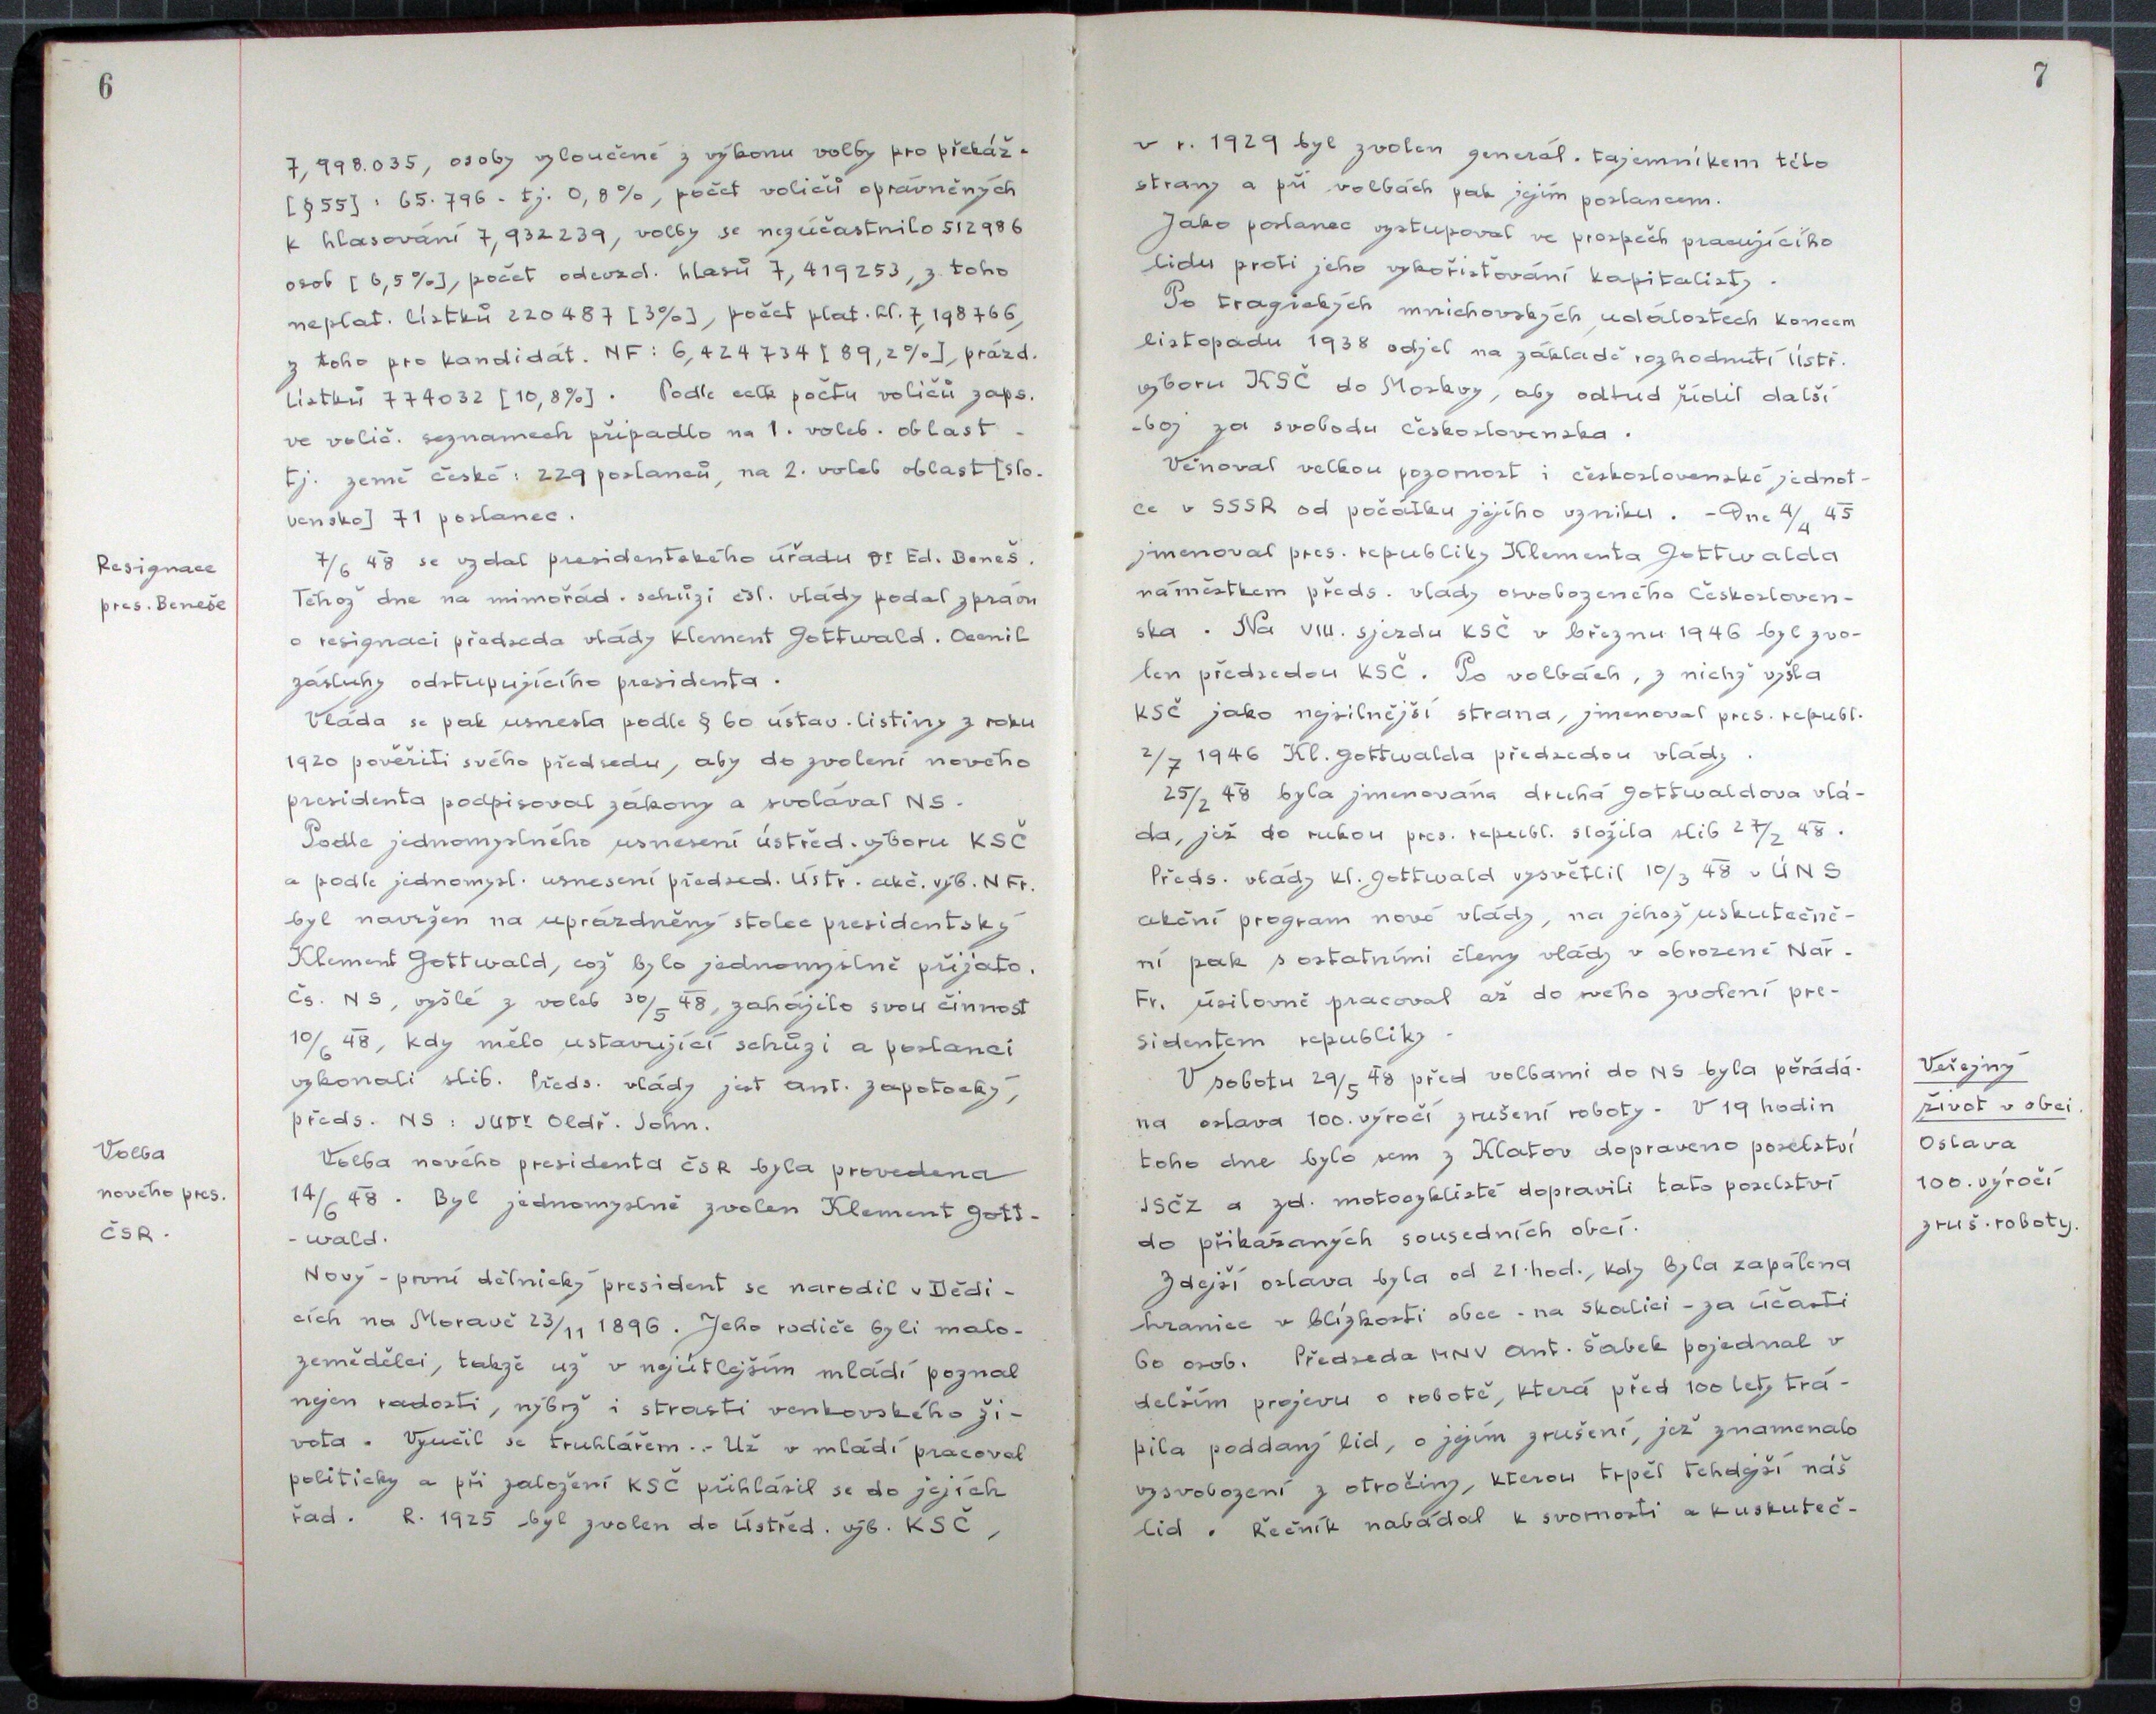 6
7,998.035, osoby vyloučené z výkonu volby pro překáž-
[§55] : 65.796 - tj. 0,8%, počet voličů oprávněných
k hlasování 7,932239, volby se nezúčastnilo 512986
osob [6,5%], počet odevzd. hlasů 7,419253, z toho
neplat. lístků 220487 [3%], počet plat. hl. 7,198766,
z toho pro kandidát. NF : 6,424734 [89,2%], prázd.
lístků 774032 [10,8%]. Podle celk počtu voličů zaps.
ve volič. seznamech připadlo na 1. voleb. oblast -
tj. země české : 229 poslanců, na 2. voleb oblast [Slo-
vensko] 71 poslanec.
Resignace
pres. Beneše
7/6 48 se vzdal presidentského úřadu Dr Ed. Beneš.
Téhož dne na mimořád. schůzi čsl. vlády podal zprávu
o resignaci předseda vlády Klement Gottwald. Ocenil
zásluhy odstupujícího presidenta.
Vláda se pak usnesla podle § 60 ústav. listiny z roku
1920 pověřiti svého předsedu, aby do zvolení nového
presidenta podpisoval zákony a svolával NS.
Podle jednomyslného usnesení ústřed. výboru KSČ
a podle jednomysl. usnesení předsed. Ústř. akč. výb. N Fr.
byl navržen na uprázdněný stolec presidentský
Klement Gottwald, což bylo jednomyslně přijato.
Čs. NS, vyšlé z voleb 30/5 48, zahájilo svou činnost
10/6 48, kdy mělo ustavující schůzi a poslanci
vykonali slib. Předs. vlády jest Ant. Zápotocký,
předs. NS : JUDr Oldř. John.
Volba
nového pres.
ČSR.
Volba nového presidenta ČSR byla provedena
14/6 48. Byl jednomyslně zvolen Klement Gott-
-wald.
Nový - první dělnický president se narodil v Dědi-
cích na Moravě 23/11 1896. Jeho rodiče byli malo-
zemědělci, takže už v nejútlejším mládí poznal
nejen radosti, nýbrž i strasti venkovského ži-
vota. Vyučil se truhlářem. - Už v mládí pracoval
politicky a při založení KSČ přihlásil se do jejích
řad. R. 1925 byl zvolen do Ústřed. výb. KSČ,
7
v r. 1929 byl zvolen generál. tajemníkem této
strany a při volbách pak jejím poslancem.
Jako poslanec vystupoval ve prospěch pracujícího
lidu proti jeho vykořisťování kapitalisty.
Po tragických mnichovských událostech koncem
listopadu 1938 odjel na základě rozhodnutí Ústř.
výboru KSČ do Moskvy, aby odtud řídil další
boj za svobodu Československa.
Věnoval velkou pozornost i československé jednot-
ce v SSSR od počátku jejího vzniku. - Dne 4/4 45
jmenoval pres. republiky Klementa Gottwalda
náměstkem předs. vlády osvobozeného Českosloven-
ska. Na VIII. sjezdu KSČ v březnu 1946 byl zvo-
len předsedou KSČ. Po volbách, z nichž vyšla
KSČ jako nejsilnější strana, jmenoval pres. republ.
2/7 1946 Kl. Gottwalda předsedou vlády.
25/2 48 byla jmenována druhá Gottwaldova vlá-
da, jež do rukou pres. republ. složila slib 27/2 48.
Předs. vlády Kl. Gottwald vysvětlil 10/3 48 v ÚNS
akční program nové vlády, na jehož uskutečně-
ní pak s ostatními členy vlády v obrozené Nár.
Fr. úsilovně pracoval až do svého zvolení pre-
sidentem republiky.
Veřejný
život v obci.
Oslava
100. výročí
zruš. roboty.
V sobotu 29/5 48 před volbami do NS byla pořádá-
na oslava 100. výročí zrušení roboty. V 19 hodin
toho dne bylo sem z Klatov dopraveno poselství
JSČZ a zd. motocyklisté dopravili tato poselství
do přikázaných sousedních obcí.
Zdejší oslava byla od 21. hod., kdy byla zapálena
hranice v blízkosti obce - na skalici - za účasti
60 osob. Předseda MNV Ant. Šabek pojednal v
delším projevu o robotě, která před 100 lety trá-
pila poddaný lid, o jejím zrušení, jež znamenalo
vysvobození z otročiny, kterou trpěl tehdejší náš
lid. Řečník nabádal k svornosti a k uskuteč-